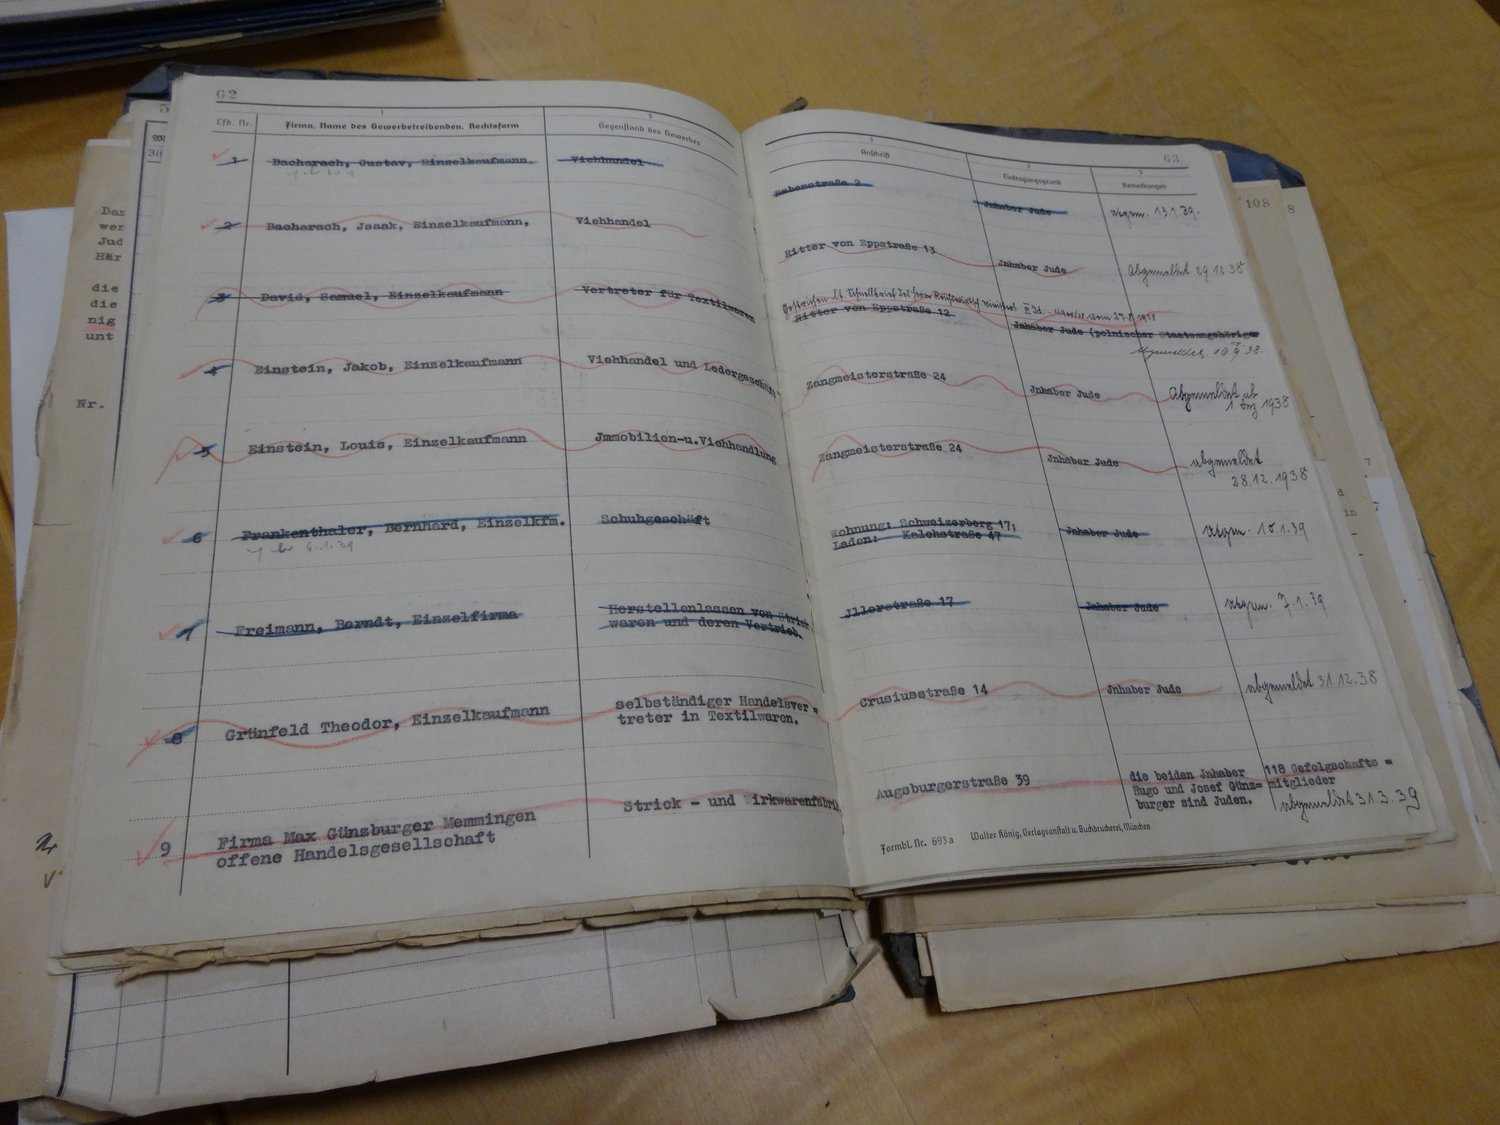 62
Lfd. Nr.
1
Firma, Name des Gewerbetreibenden, Rechtsform
2
Gegenstand des Gewerbes
1 Bacharach, Gustav, Einzelkaufmann. Viehhandel
2 Bacharach, Jsaak, Einzelkaufmann, Viehhandel
3 David, Samuel, Einzelkaufmann Vertreter für Textilwaren
4 Einstein, Jakob, Einzelkaufmann Viehhandel und Ledergeschäft
5 Einstein, Louis, Einzelkaufmann Jmmobilien-u.Viehhandlung
6 Frankenthaler, Bernhard, Einzelkfm. Schuhgeschäft
7 Freimann, Berndt, Einzelfirma Herstellenlassen von Strick
waren und deren Vertrieb.
8 Grünfeld Theodor, Einzelkaufmann selbständiger Handelsver =
treter in Textilwaren.
9 Firma Max Günzburger Memmingen Strick - und Wirkwarenfabrik
offene Handelsgesellschaft
63
3
Anschrift
4
Eintragungsgrund
5
Bemerkungen
Rebenstraße 2
Jnhaber Jude abgem. 13.1.39.
Ritter von Eppstraße 13 Jnhaber Jude Abgemeldet 29.12.38
Gestrichen lt. Schnellbrief des
Ritter von Eppstraße 12 Jnhaber Jude (polnischer Staatsangehöriger
38.
Zangmeisterstraße 24 Jnhaber Jude Abgemeldet ab
1 Dez 1938
Zangmeisterstraße 24 Jnhaber Jude abgemeldet
28.12.1938
Wohnung: Schweizerberg 17;
Laden: Kalchstraße 47 Jnhaber Jude abgem. 10.1.39
Jllerstraße 17 Jnhaber Jude abgem. 7.1.39
Crusiusstraße 14 Jnhaber Jude abgemeldet 31.12.38
Augsburgerstraße 39 die beiden Jnhaber 118 Gefolgschafts =
Hugo und Josef Günz= mitglieder
burger sind Juden. abgemeldet 31.3.39
Formbl. Nr. 693 a Walter König, Verlagsanstalt u. Buchdruckerei, München
Jud
Här
die
die
nig
unt
Nr.
108
8